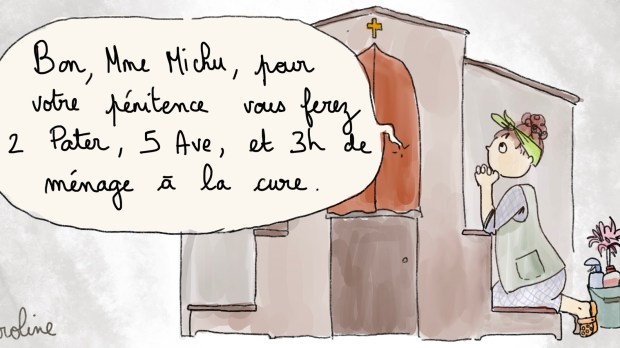 Bon, Mme Michu, pour
votre pénitence vous ferez
2 Pater, 5 Ave, et 3h de
ménage à la cure.
roline